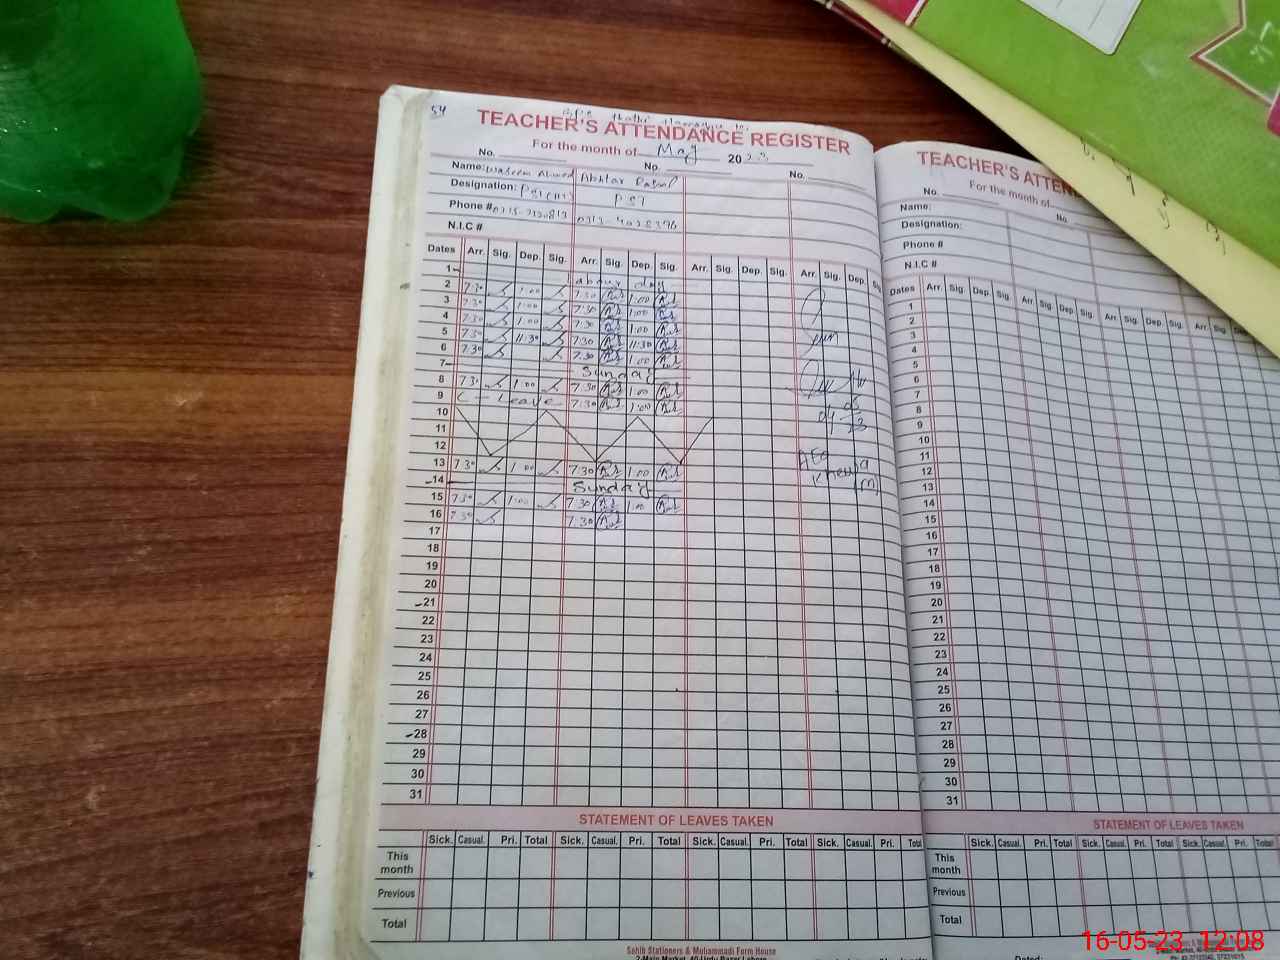 54
TEACHER'S ATTENDANCE REGISTER
For the month of May 2023
No. No. No.
Name: Waseem Ahmed Akhtar Rasool
Designation: PST PST
Phone #
N.I.C #
Dates Arr. Sig. Dep. Sig. Arr. Sig. Dep. Sig. Arr. Sig. Dep. Sig. Arr. Sig. Dep. Sig.
1 labour day
2 7:30 1:00 7:30 1:00
3 7:30 1:00 7:30 1:00
4 7:30 1:00 7:30 1:00
5 7:30 11:30 7:30 11:30
6 7:30 7:30 1:00
7 Sunday
8 7:30 1:00 7:30 1:00
9 C - Leave 7:30 1:00
10
11
12
13 7:30 1:00 7:30 1:00
14 Sunday
15 7:30 1:00 7:30 1:00
16 7:30 7:30
17
18
19
20
21
22
23
24
25
26
27
28
29
30
31
AEO
STATEMENT OF LEAVES TAKEN
Sick. Casual. Pri. Total Sick. Casual. Pri. Total Sick. Casual. Pri. Total Sick. Casual. Pri. Total
This month
Previous
Total
Sahib Stationers & Muhammadi Form House
2-Main Market, 40-Urdu Bazar Lahore
TEACHER'S ATTEN
For the month of
No. No.
Name:
Designation:
Phone #
N.I.C #
Dates Arr. Sig. Dep. Sig. Arr. Sig. Dep. Sig. Arr. Sig. De
1
2
3
4
5
6
7
8
9
10
11
12
13
14
15
16
17
18
19
20
21
22
23
24
25
26
27
28
29
30
31
STATEMENT OF LEAVES TAKEN
Sick. Casual. Pri. Total Sick. Casual. Pri. Total Sick. Casual. Pri. Total
This month
Previous
Total
Dated:
16-05-23 12:08